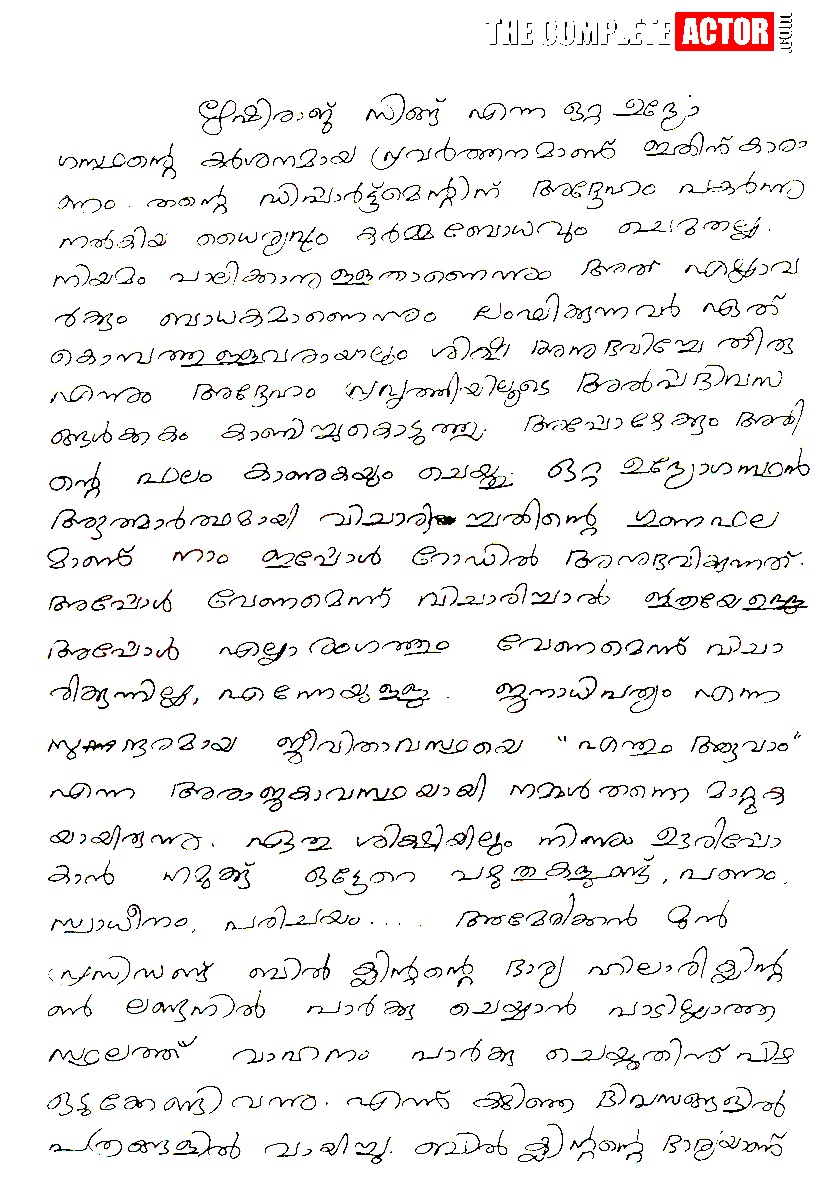 THE COMPLETE ACTOR
ഋഷിരാജ് സിങ്ങ് എന്ന ഒറ്റ ഉദ്യോ
ഗസ്ഥന്റെ കർശനമായ പ്രവർത്തനമാണ് ഇതിന് കാര
ണം. തന്റെ ഡിപ്പാർട്ട്മെന്റിന് അദ്ദേഹം പകർന്നു
നൽകിയ ധൈര്യവും കർമ്മബോധവും ചെറുതല്ല.
നിയമം പാലിക്കാനുള്ളതാണെന്നും അത് എല്ലാവ
ർക്കും ബാധകമാണെന്നും ലംഘിക്കുന്നവർ ഏത്
കൊമ്പത്തുള്ളവരായാലും ശിക്ഷ അനുഭവിച്ചേ തീരൂ
എന്നും അദ്ദേഹം പ്രവൃത്തിയിലൂടെ അൽപ്പദിവസ
ങ്ങൾക്കകം കാണിച്ചുകൊടുത്തു. അപ്പോഴേക്കും അതി
ന്റെ ഫലം കാണുകയും ചെയ്തു. ഒറ്റ ഉദ്യോഗസ്ഥൻ
ആത്മാർത്ഥമായി വിചാരിച്ചതിന്റെ ഗുണഫല
മാണ് നാം ഇപ്പോൾ റോഡിൽ അനുഭവിക്കുന്നത്.
അപ്പോൾ വേണമെന്ന് വിചാരിച്ചാൽ ഇത്രയേ ഉള്ളൂ
അപ്പോൾ എല്ലാ രംഗത്തും വേണമെന്ന് വിചാ
രിക്കുന്നില്ല, എന്നേയുള്ളൂ. ജനാധിപത്യം എന്ന
സുന്ദരമായ ജീവിതാവസ്ഥയെ "എന്തും ആവാം"
എന്ന അരാജകാവസ്ഥയായി നമ്മൾ തന്നെ മാറ്റുക
യായിരുന്നു. ഏതു ശിക്ഷയിലും നിന്നും ഊരിപ്പോ
കാൻ നമുക്ക് ഒട്ടേറെ പഴുതുകളുണ്ട്, പണം,
സ്വാധീനം, പരിചയം.... അമേരിക്കൻ മുൻ
പ്രസിഡണ്ട് ബിൽ ക്ലിന്റന്റെ ഭാര്യ ഹിലാരി ക്ലിന്റ
ൺ ലണ്ടനിൽ പാർക്കു ചെയ്യാൻ പാടില്ലാത്ത
സ്ഥലത്ത് വാഹനം പാർക്കു ചെയ്തതിന് പിഴ
ഒടുക്കേണ്ടി വന്നു. എന്ന് കഴിഞ്ഞ ദിവസങ്ങളിൽ
പത്രങ്ങളിൽ വായിച്ചു. ബിൽ ക്ലിന്റന്റെ ഭാര്യയാണ്